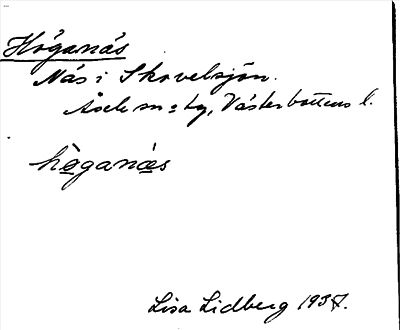 Höganäs
Näs i Skovelsjön.
Åsele sn o tg, Västerbottens l.
höganäs
Lisa Lidberg 1937.